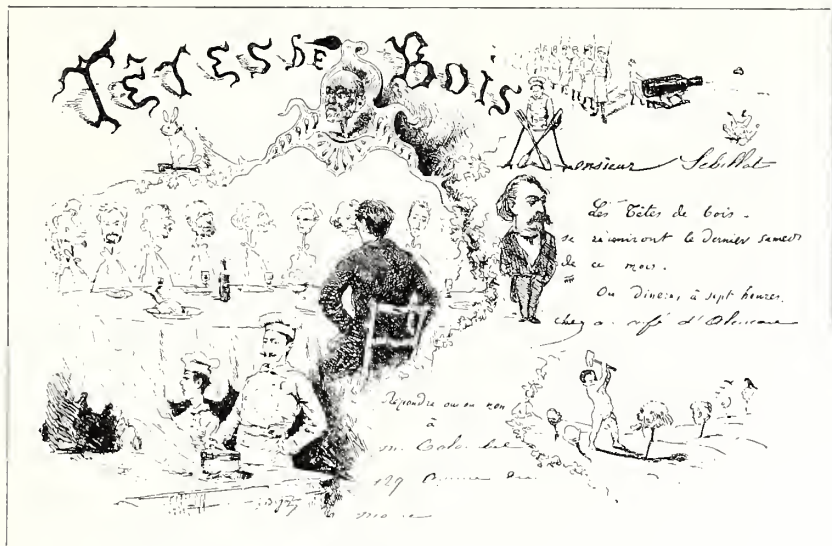 TÊTES DE BOIS
Monsieur Sébillot
Les Têtes de bois
se réuniront le dernier samedi
de ce mois.
On dînera, à sept heures,
chez
Répondre oui ou non
à
M.
129 Avenue du